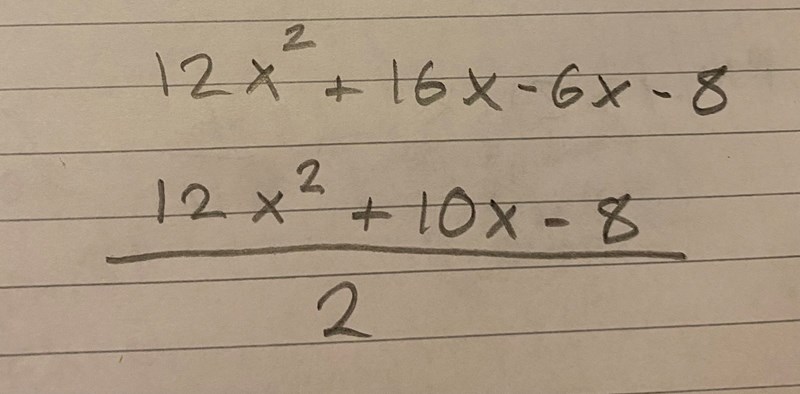 12x² + 16x - 6x - 8
12x² + 10x - 8
2